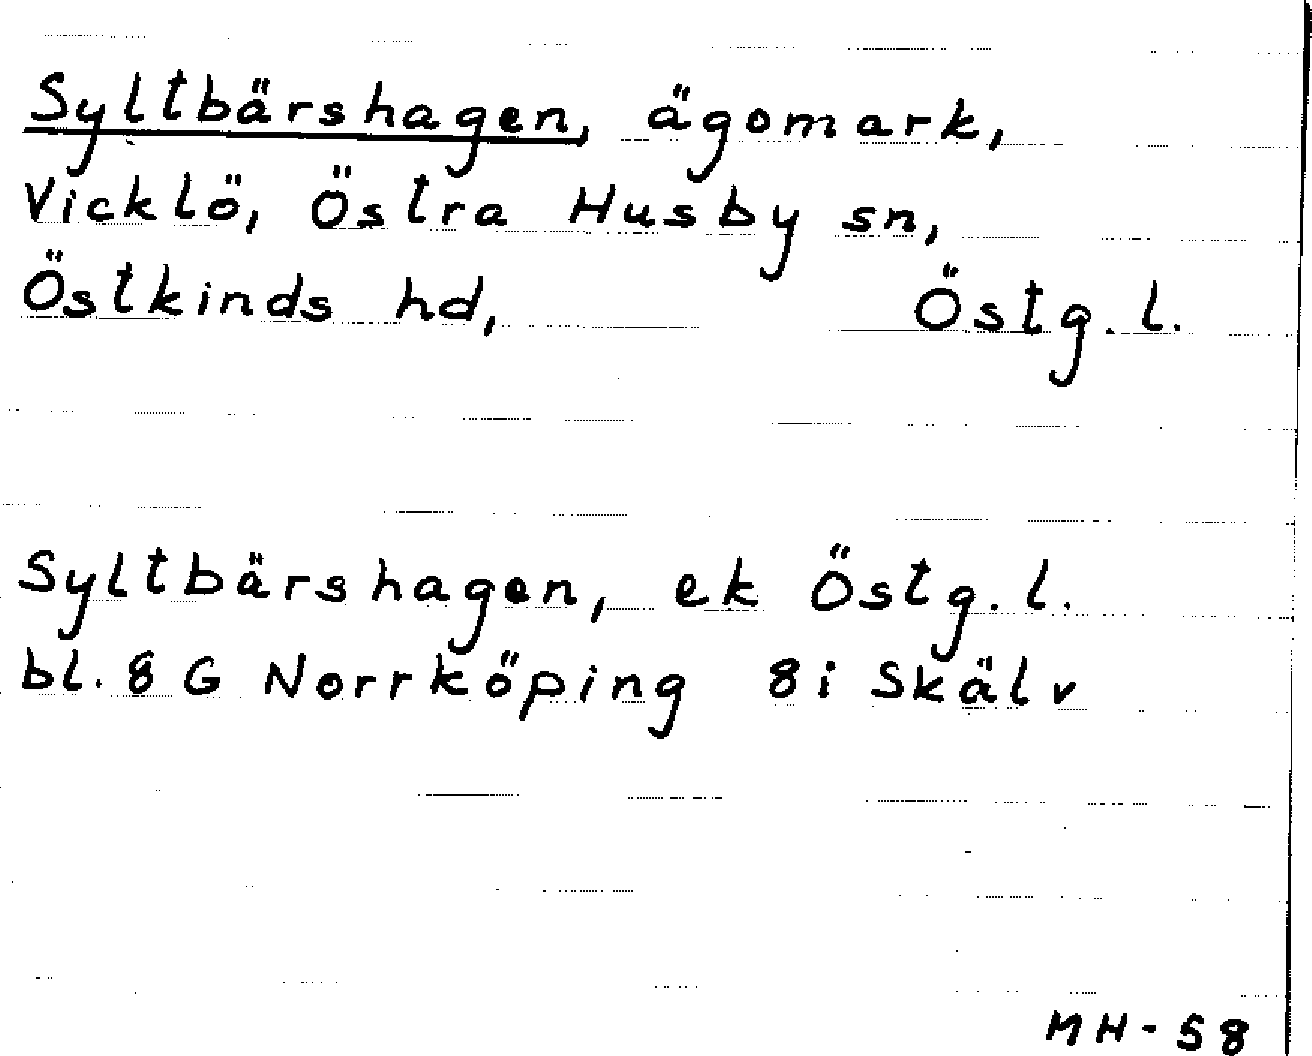 Syltbärshagen, ägomark,
Vicklö, Östra Husby sn,
Östkinds hd, Östg. l.
Syltbärshagen, ek Östg. l.
bl. 8 G Norrköping 8i Skälv
MH-58